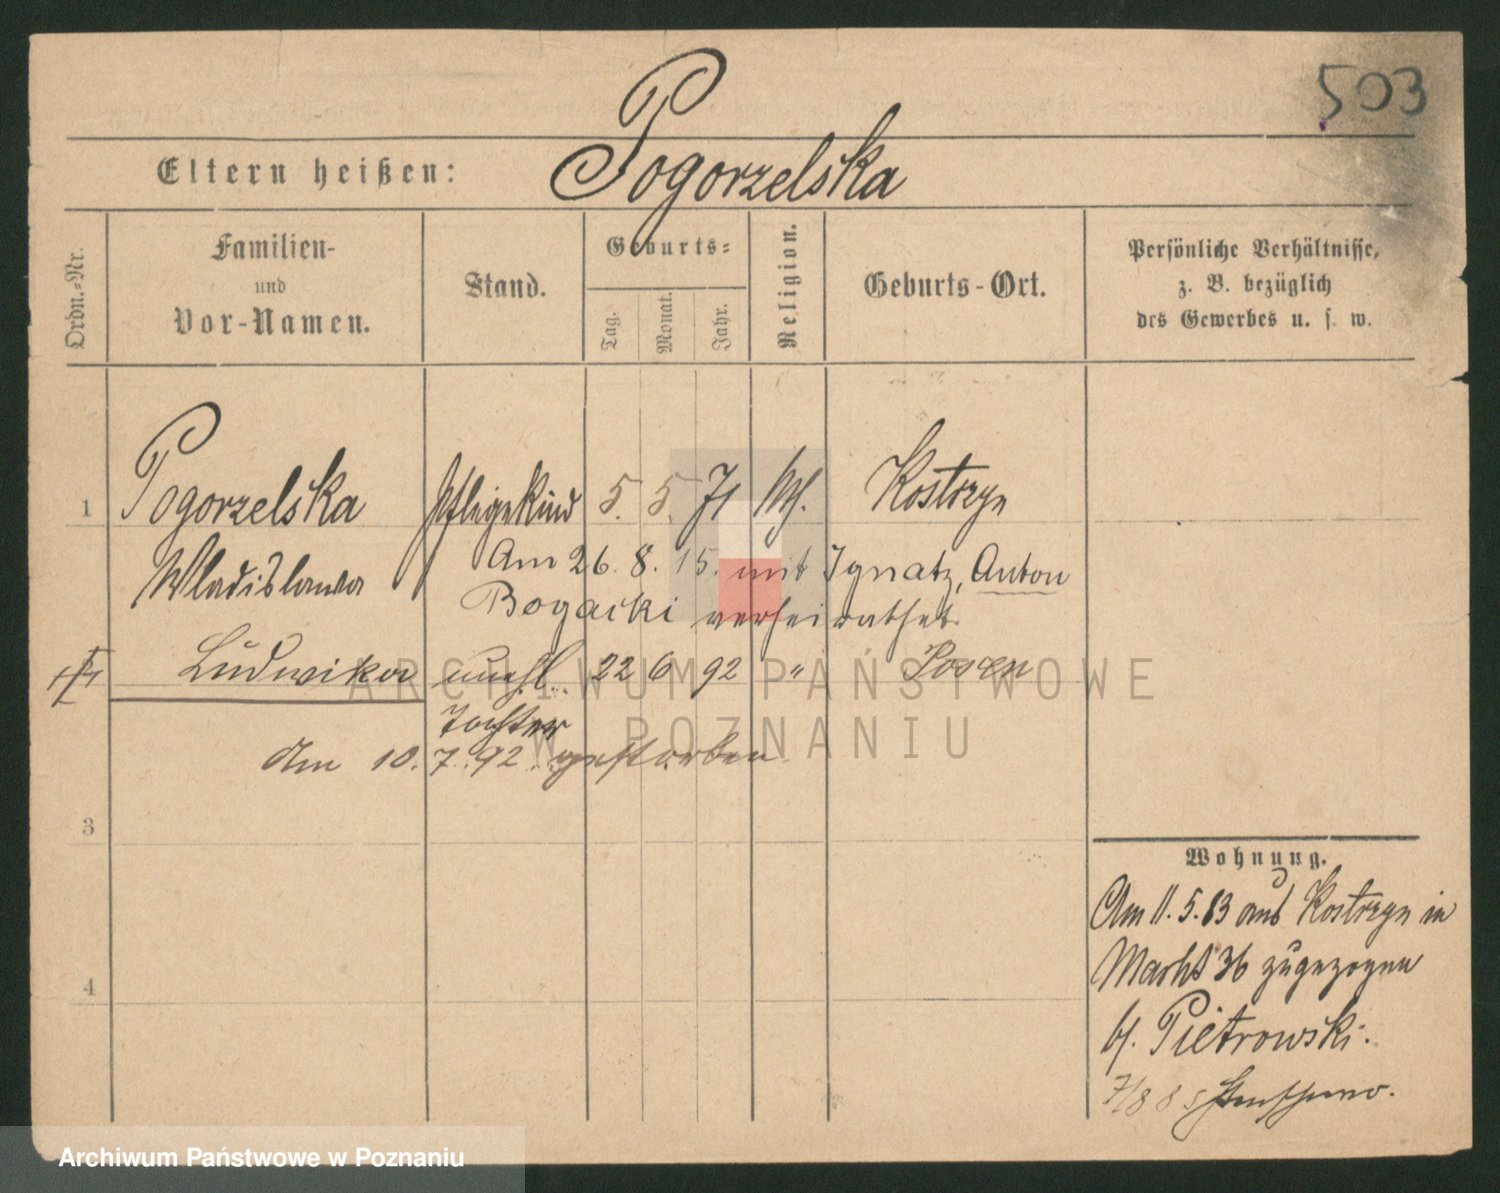 503
Eltern heißen: Pogorzelska
Ordn.-Nr.
Familien-
und
Vor-Namen.
Stand.
Geburts-
Tag.
Monat.
Jahr.
Religion.
Geburts-Ort.
Persönliche Verhältnisse,
z. B. bezüglich
des Gewerbes u. s. w.
1 Pogorzelska Pflegekind 5. 5. 71 Kostrzyn
Wladislawa Am 26. 8. 15. mit Ignatz, Anton
Bogacki verheirathet.
Ludwika unehl. 22 6 92 " Posen
Tochter
Am 10. 7. 92 gestorben
3
4
Wohnung.
Am 11. 5. 83 aus Kostrzyn in
Markt 36 zugezogen
b. Pietrowski.
7/8 85
ARCHIWUM PAŃSTWOWE
W POZNANIU
Archiwum Państwowe w Poznaniu